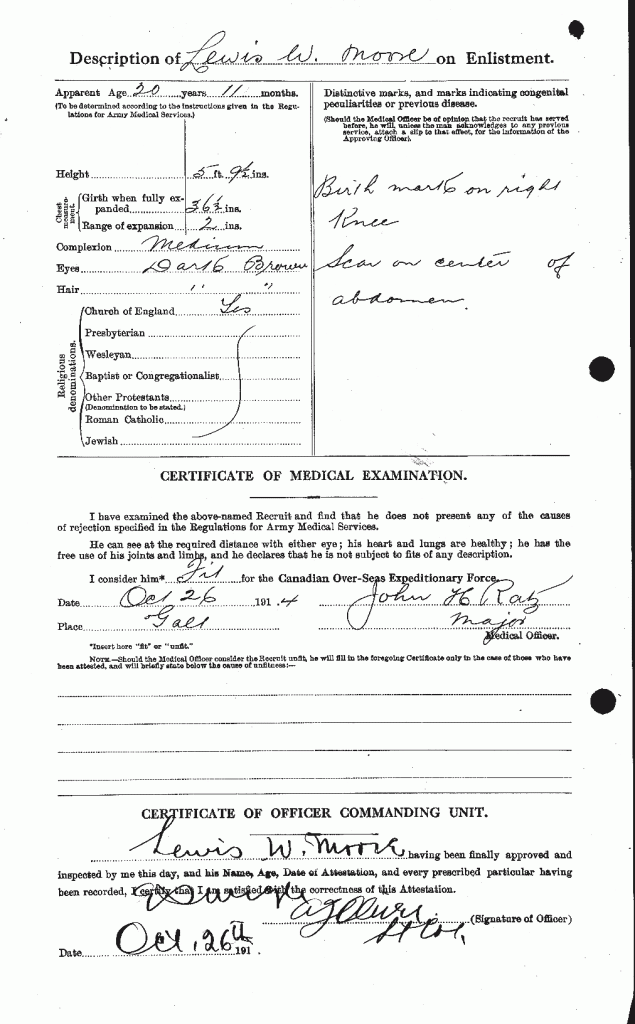 Description of Lewis W. Moore on Enlistment.
Apparent Age 20 years 11 months.
(To be determined according to the instructions given in the Regulations for Army Medical Services.)
Height 5 ft. 9½ ins.
Chest measurement.
Girth when fully expanded 36½ ins.
Range of expansion 2 ins.
Complexion Medium
Eyes Dark Brown
Hair " "
Religious denominations.
Church of England Yes
Presbyterian
Wesleyan
Baptist or Congregationalist
Other Protestants
(Denomination to be stated.)
Roman Catholic
Jewish
Distinctive marks, and marks indicating congenital
peculiarities or previous disease.
(Should the Medical Officer be of opinion that the recruit has served
before, he will, unless the man acknowledges to any previous
service, attach a slip to that effect, for the information of the
Approving Officer).
Birth mark on right
Knee
Scar on center of
abdomen.
CERTIFICATE OF MEDICAL EXAMINATION.
I have examined the above-named Recruit and find that he does not present any of the causes
of rejection specified in the Regulations for Army Medical Services.
He can see at the required distance with either eye; his heart and lungs are healthy; he has the
free use of his joints and limbs, and he declares that he is not subject to fits of any description.
I consider him* Fit for the Canadian Over-Seas Expeditionary Force.
Date Oct 26 1914
John H Ratz
Place Galt
Major
Medical Officer.
*Insert here "fit" or "unfit."
NOTE.—Should the Medical Officer consider the Recruit unfit, he will fill in the foregoing Certificate only in the case of those who have
been attested, and will briefly state below the cause of unfitness:—
CERTIFICATE OF OFFICER COMMANDING UNIT.
Lewis W. Moore having been finally approved and
inspected by me this day, and his Name, Age, Date of Attestation, and every prescribed particular having
been recorded, I certify that I am satisfied with the correctness of this Attestation.
(Signature of Officer)
Lt Col.
Date Oct, 26th 191 .